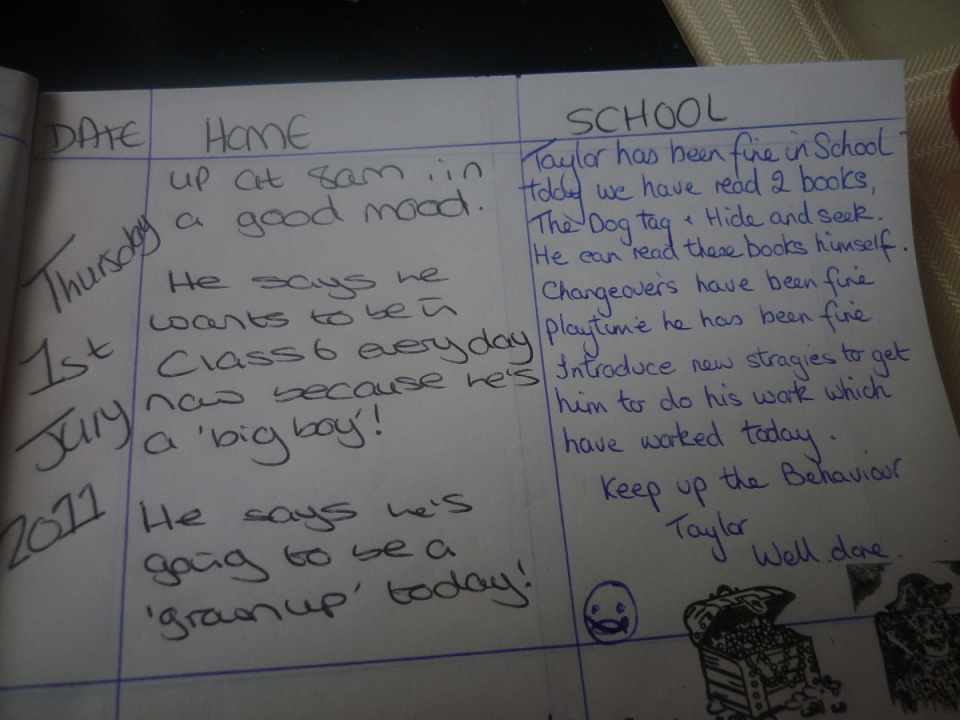 DATE
HOME
SCHOOL
Thursday
1st
July
2011
up at 8am . in
a good mood.
He says he
wants to be in
Class 6 everyday
now because he's
a 'big boy'!
He says he's
going to be a
'grown up' today!
Taylor has been fine in School
today we have read 2 books,
The Dog tag + Hide and seek.
He can read these books himself.
Changeovers have been fine
playtime he has been fine
Introduce new stragies to get
him to do his work which
have worked today.
Keep up the Behaviour
Taylor
Well done.